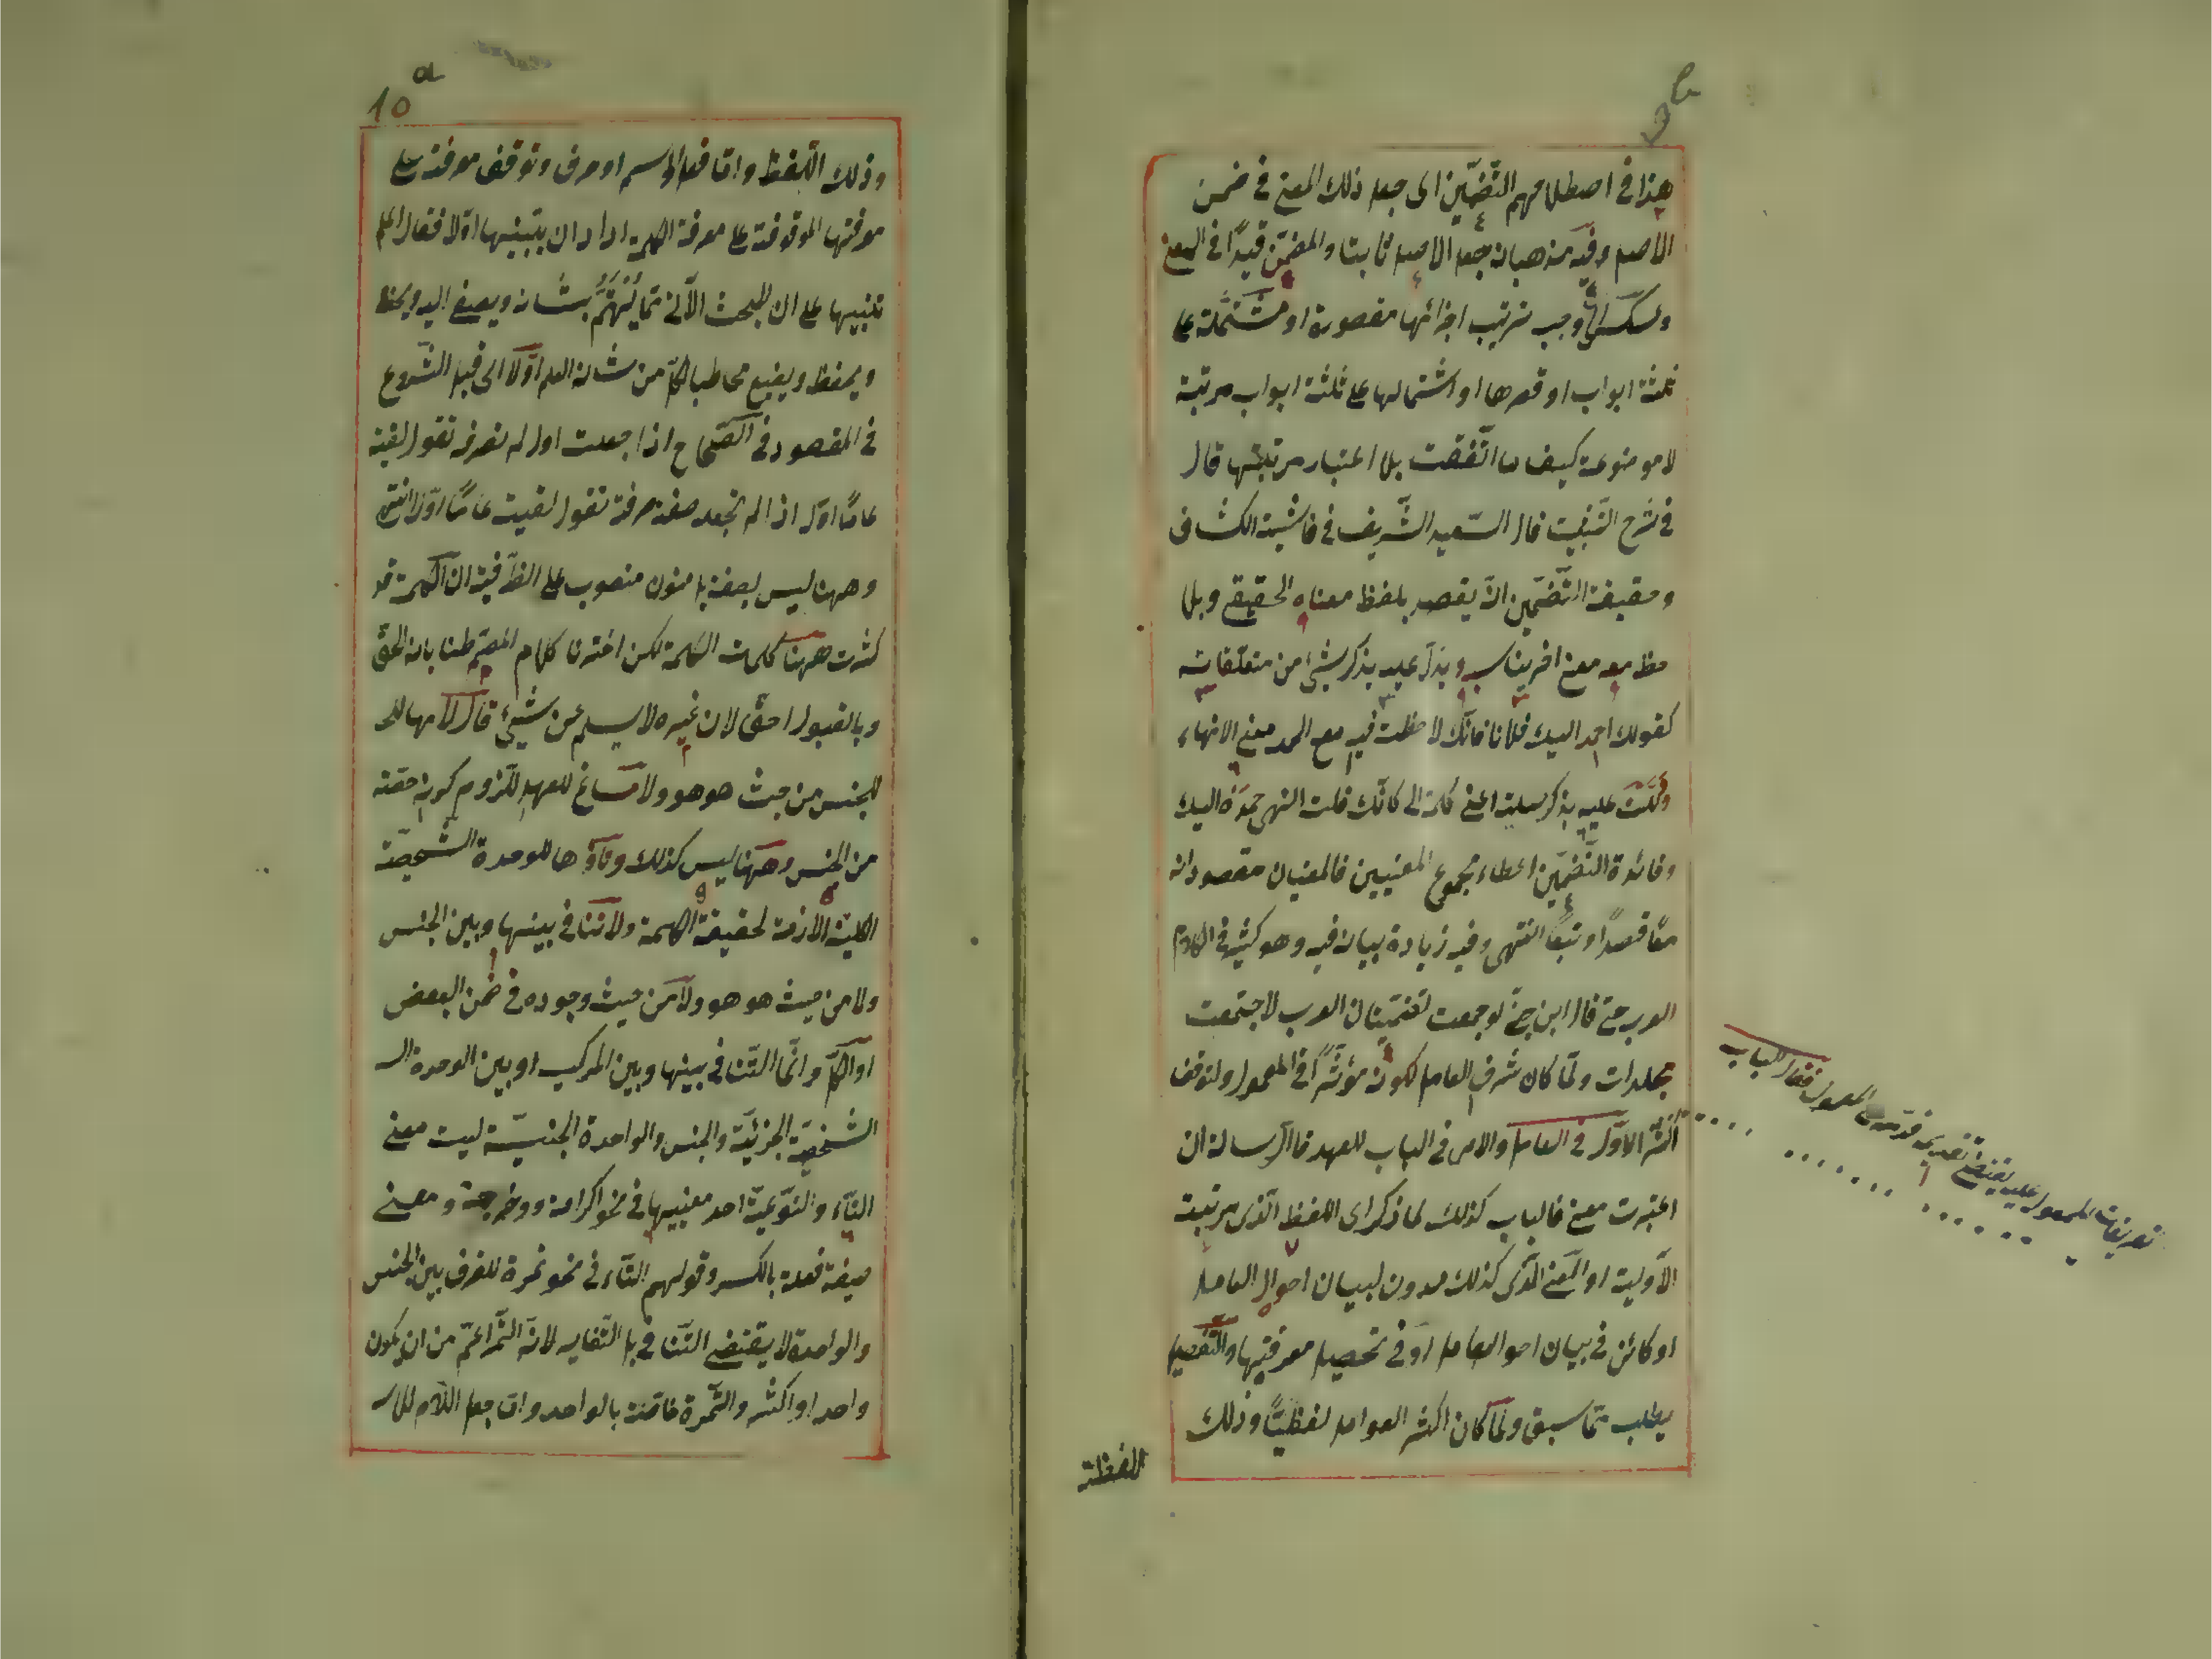 هذا في اصطلاحهم التضمين اى جعل ذلك المعنى في ضمن
الاصل وفيه مذهبان جعل الاصل ثابتا والمضمن قيدًا في المعنى
وعكسه وجب ترتيب اجزائها مقصورة او مشتملة على
ثلثة ابواب او قصرها او اشتمالها على ثلثة ابواب مرتبة
لا موضوعة كيف ما اتفقت بلا اعتبار مرتبتها قال
في شرح التثبيت قال السعيد الشريف في حاشية الكشاف
وحقيقة التضمين ان يقصد بلفظ معناه الحقيقي ويلا
حظ معه معنى اخر يناسبه ويدل عليه بذكر شئ من متعلقاته
كقولك احمد اليك فلانا فانك لاحظت فيه مع الحمد معنى الانهاء
ودللت عليه بذكر صلته اعنى كلمة الى كانك قلت انهى حمده اليك
وفائدة التضمين اعطاء مجموع المعنيين فالمعنيان مقصودان
معًا قصدًا وتبعًا انتهى وفيه زيادة بيان فيه وهو كثير في الكلام
العرب حتى قال ابن جنى لو جمعت تضمينات العرب لاجتمعت
مجلدات ولما كان شرف العامل لكونه مؤثرًا في المعمول ولتوقف
الاول في العامل والامر في الباب للعهد فالرسالة ان
اعتبرت معنى فالباب كذلك لما ذكر اى اللفظ الذى مرتبته
الاولية او المعنى الذى كذلك مدون لبيان احوال العامل
او كائن في بيان احوال العامل او في تحصيل معرفتها والتفصيل
يطلب مما سبق ولما كان اكثر العوامل لفظيًا وذلك
اللفظ
تعريفات المعمول عليه يقتضى تقديمه قدمه على المعمول فقال الباب
9b
10a
وذلك اللفظ واما فعل او اسم او حرف وتوقف معرفته على
معرفتها الموقوفة على معرفة الكلمة اراد ان يبينها اولا فقال اعلم
تنبيها على ان المبحث الآتى مما يهتم بشانه ويصغى اليه
ويحفظ ويضيع مخاطبا لكل من شانه العلم اولا اى قبل الشروع
في المقصود في الصحاح اذا جعلت اول له تصرفه تقول لقيته
عامًا اول اذا لم تجعله صفة صرفته تقول لقيت عامًا اولا انتهى
وههنا ليس بصفة بل منون منصوب على الظرفية ان الكلمة قد
كثرت ههنا كلمات الكلمة لكن اخترنا كلام بانه الحق
وبالقبول احق لان غيره لا يسلم عن شئ قال لامها
للجنس من حيث هو هو ولا مساغ للعهد للزوم كونه حصة
من الجنس وههنا ليس كذلك وتاؤها للوحدة الشخصية
الكلية الازمة لحقيقة الكلمة ولا تنافى بينها وبين الجنس
ولا من حيث هو هو ولا من حيث وجوده في ضمن البعض
او الكل وانما التنافى بينها وبين المركب او بين الوحدة
الشخصية الجزئية والجنس والواحدة الجنسية ليست معنى
التاء والنوعية احد معنييها في نحو اكرامة ودخرجة ومعنى
صيغة فعلة بالكسر وقولهم التاء في نحو تمرة للفرق بين الجنس
والواحدة لا يقتضى التنافى بل التغاير لان التمر اعم من ان يكون
واحدا او اكثر والتمرة خاصة بالواحد واما جعل اللام